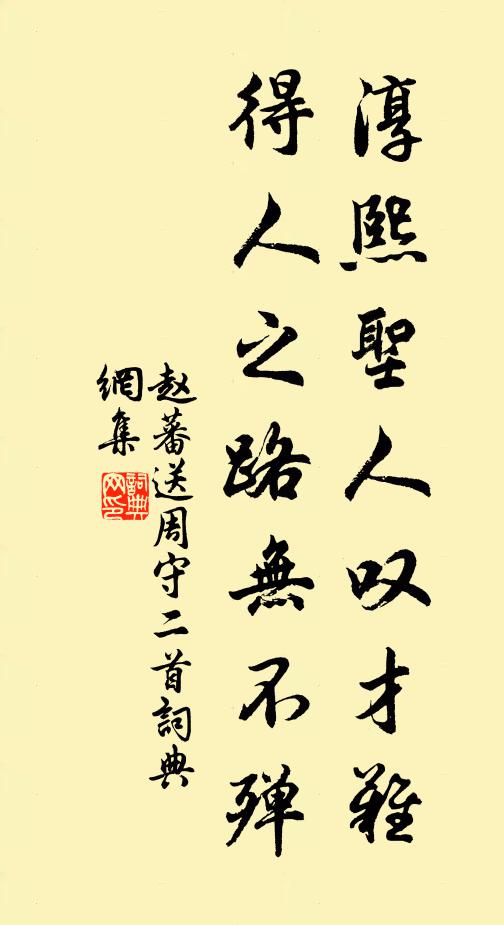 淳熙聖人叹才難
得人之路無不殫
赵蕃送周守二首詞典
網集
詞典網印